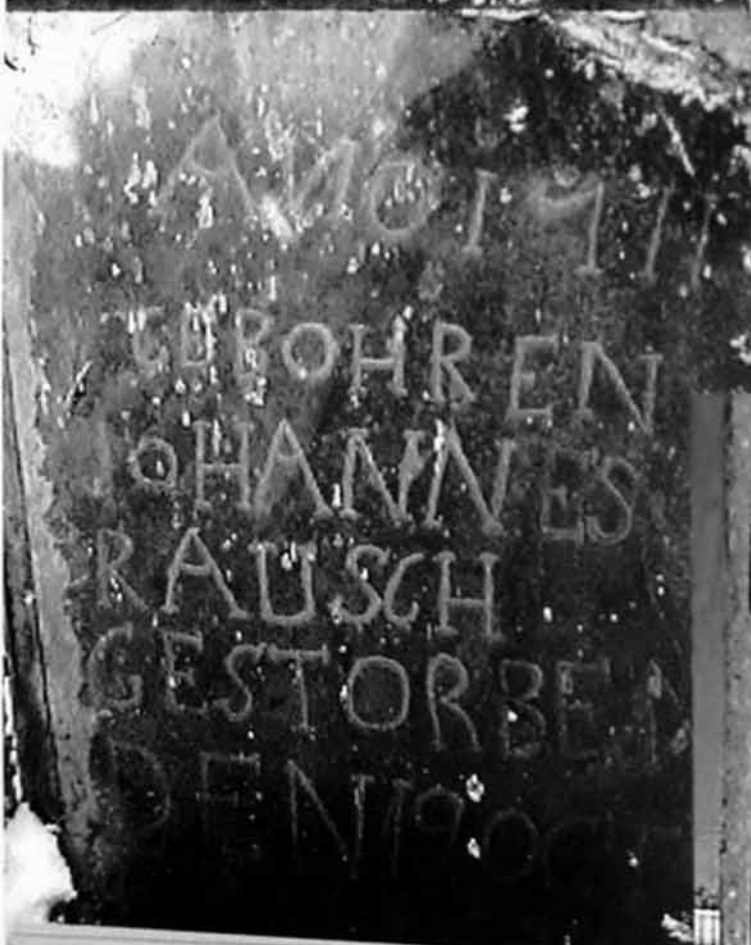 ANO 1711
GEBOHREN
IOHANNES
RAUSCH
GESTORBEN
DEN 19 OC